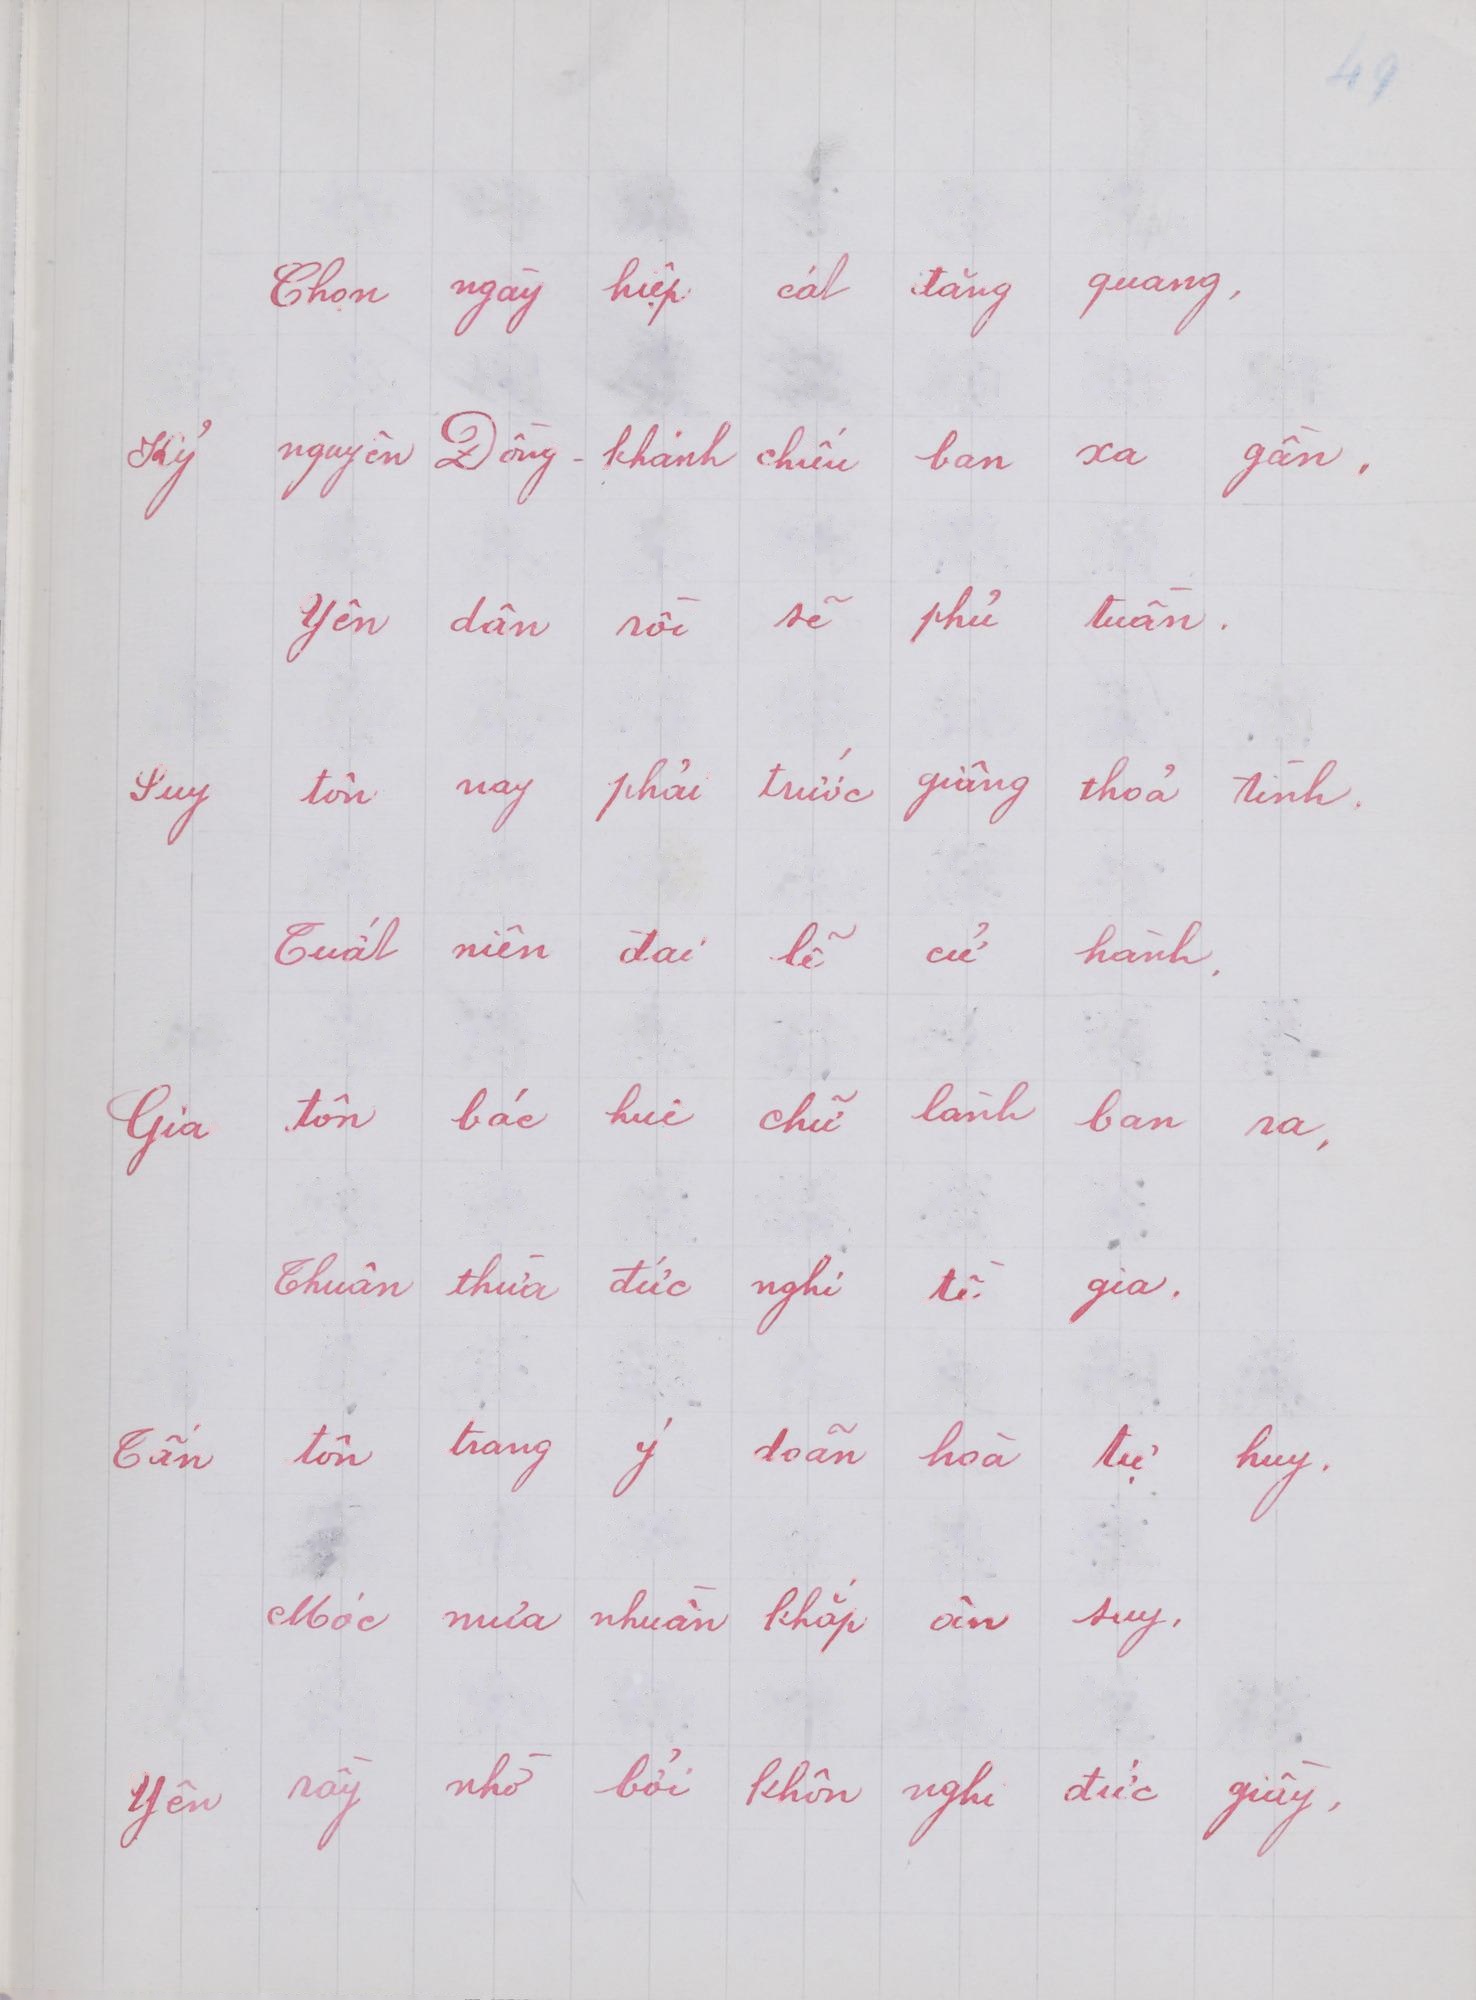 49
Chọn ngày hiệp cát tăng quang,
Kỷ nguyên Đồng-khánh chiếu ban xa gần.
Yên dân rồi sẽ phủ tuần.
Suy tôn nay phải trước giâng thoả tình.
Tuất niên đai lễ cử hành,
Gia tôn bác huê chữ lành ban ra,
Thuân thừa đức nghi tề gia.
Tấn tôn trang ý doãn hoà tự huy.
Móc mưa nhuần khắp ân suy,
Yên rầy nhờ bởi khôn nghi đức giầy,